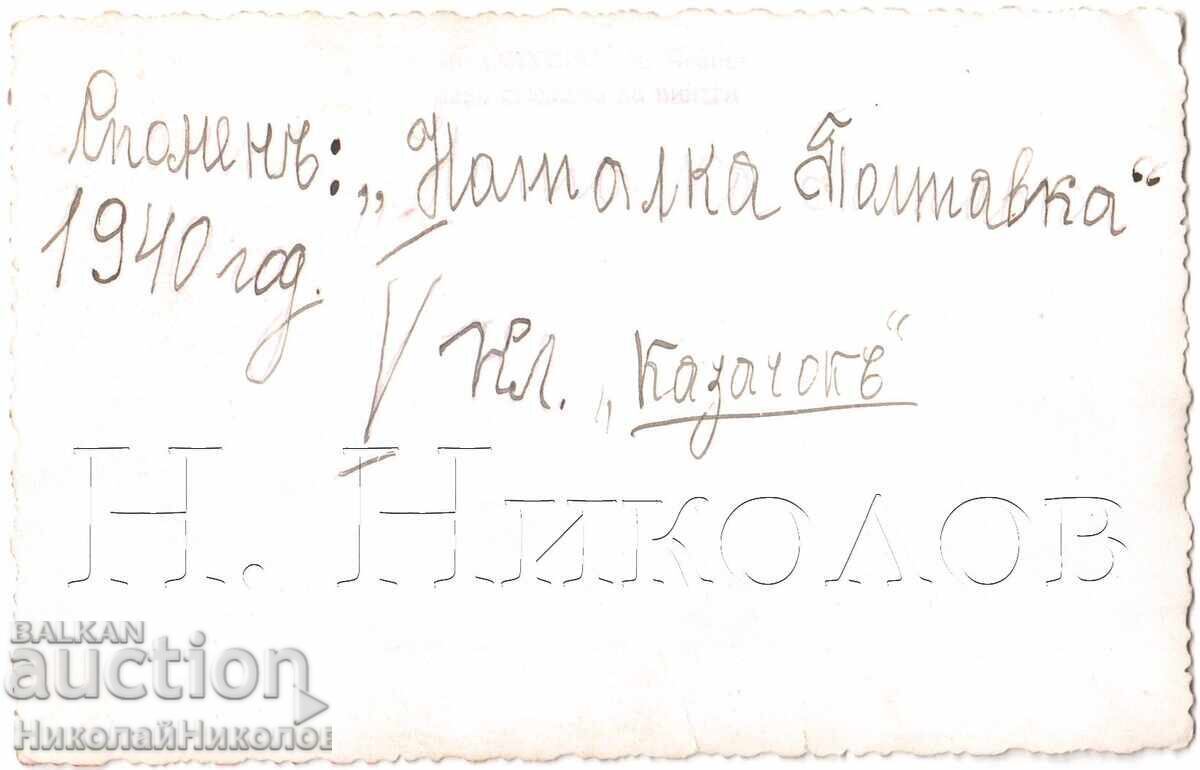 Споменъ: „Наталка Полтавка“
1940 год.
V Кл. „Казачокъ“
Н. Николов
BALKAN
auction
НиколайНиколов